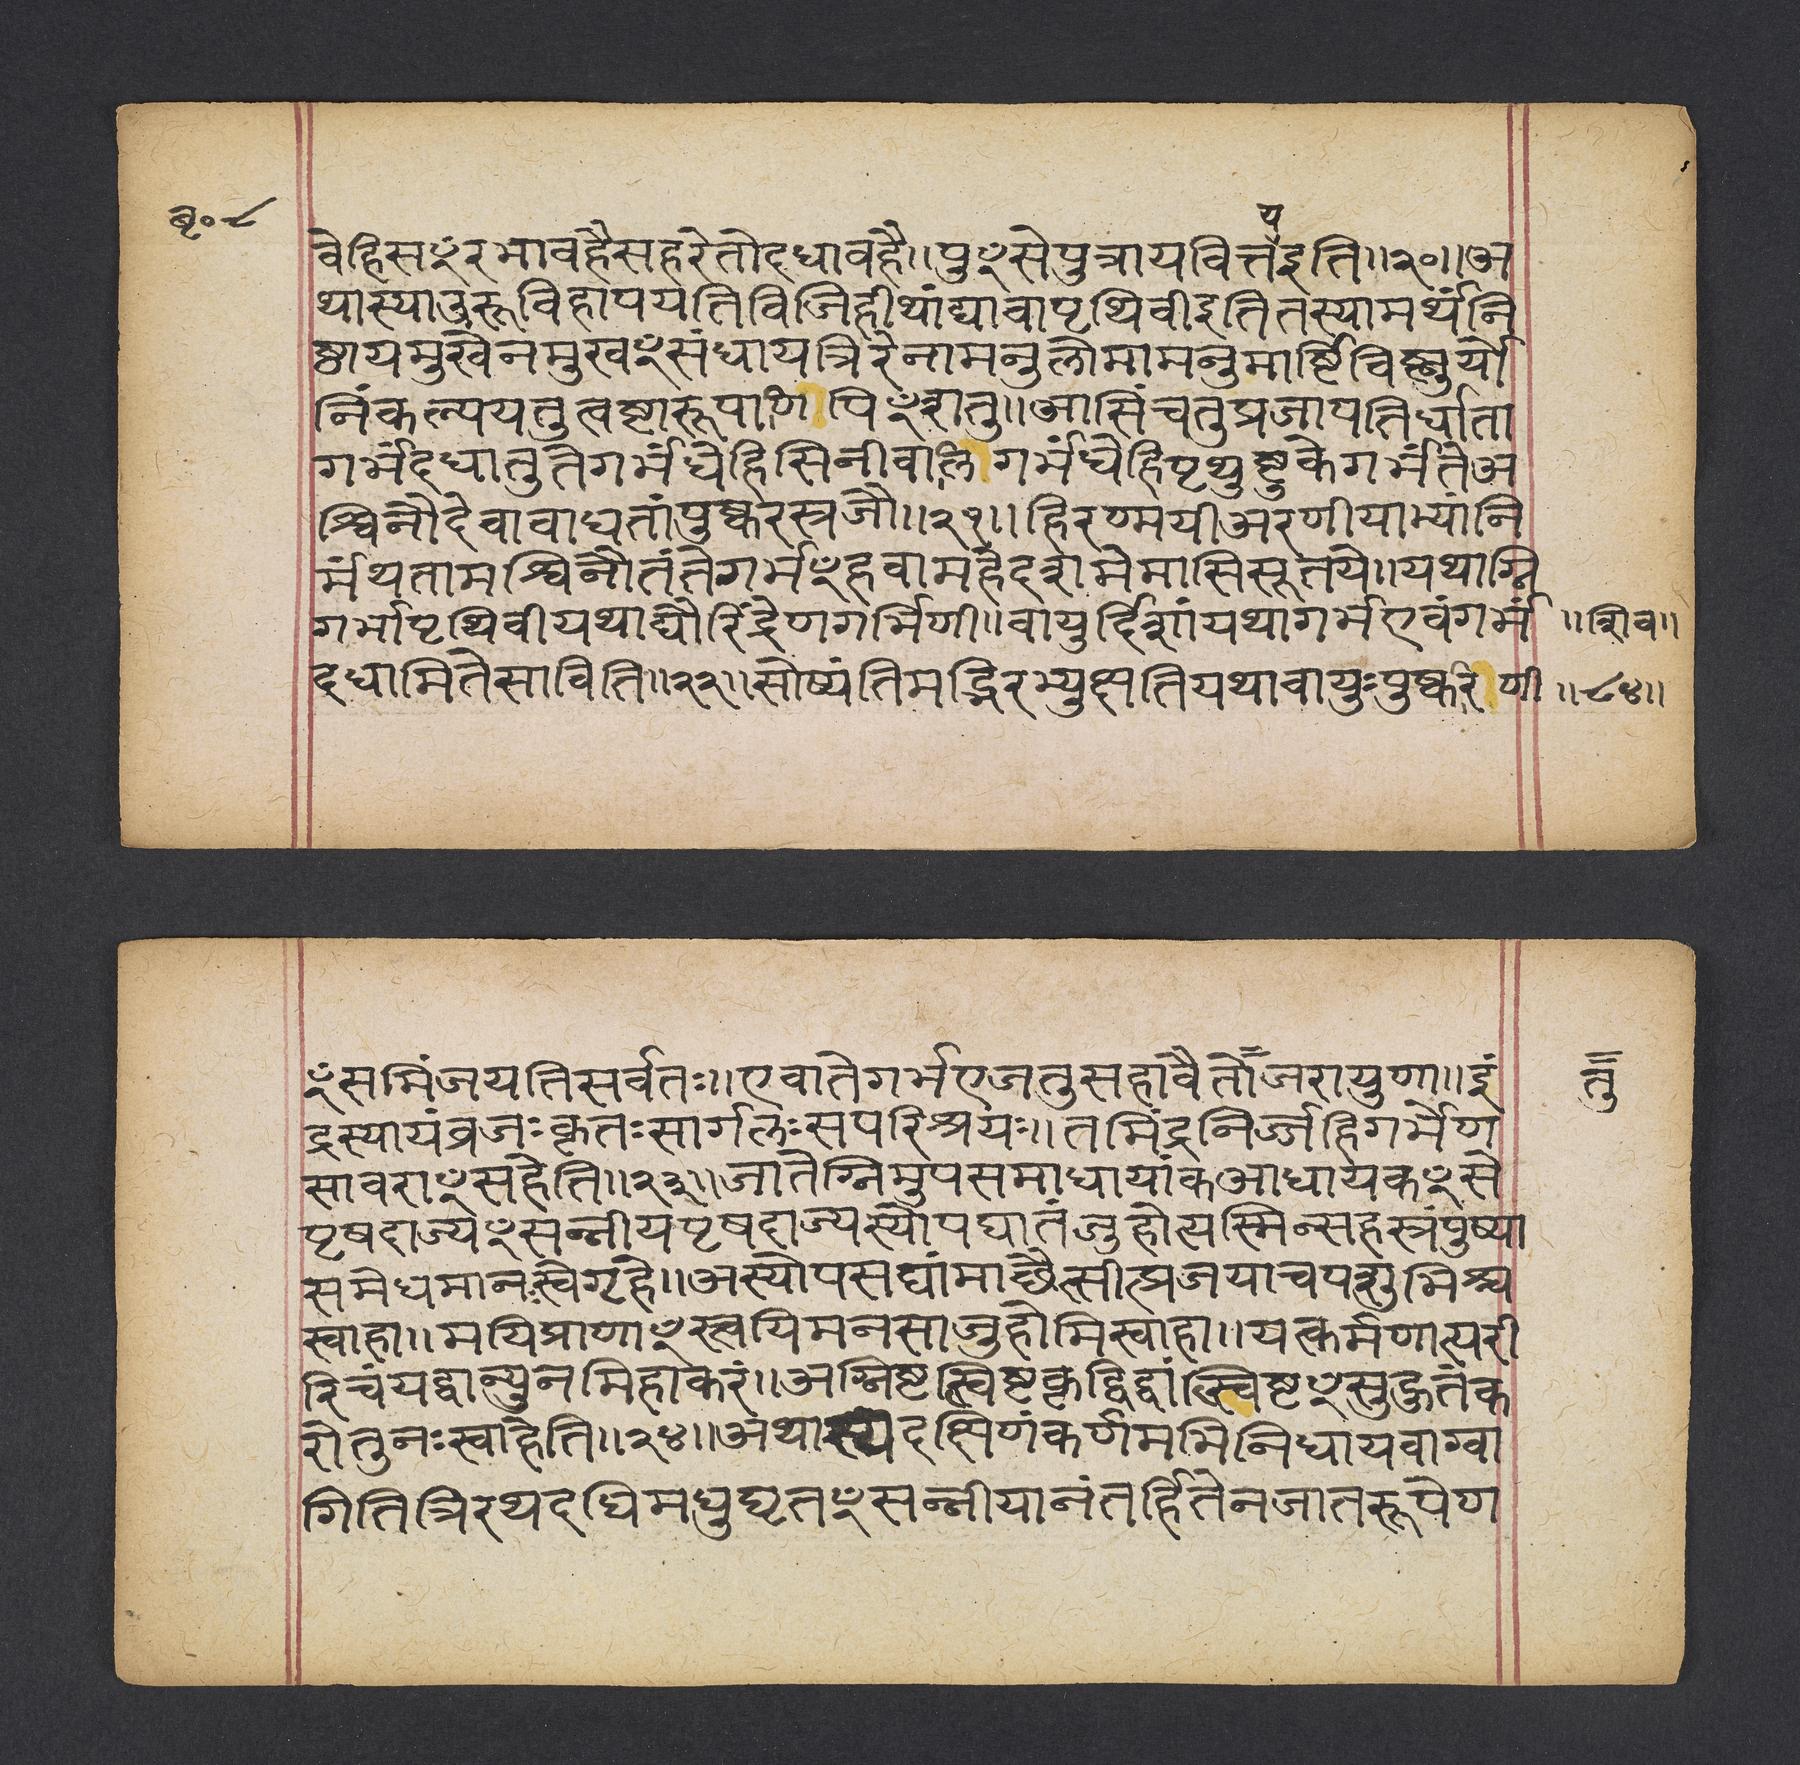 बृ॰ ८
य
वेहिसꣳरभावहैसहरेतोदधावहै॥पुꣳसेपुत्रायवित्तेइति॥२०॥अ
थास्याउरूविहापयतिविजिहीथांद्यावापृथिवीइतितस्यामर्थंनि
ष्ठायमुखेनमुखꣳसंधायत्रिरेनामनुलोमामनुमार्ष्टिविष्णुर्यो
निंकल्पयतुत्वष्टारूपाणिपिꣳशतु॥आसिंचतुप्रजापतिर्धाता
गर्भंदधातुतेगर्भंधेहिसिनीवालिगर्भंधेहिपृथुष्टुकेगर्भंतेअ
श्विनौदेवावाधतांपुष्करस्रजौ॥२१॥हिरण्मयीअरणीयाभ्यांनि
र्मंथतामश्विनौतंतेगर्भꣳहवामहेदशमेमासिसूतये॥यथाग्नि
गर्भापृथिवीयथाद्यौरिंद्रेणगर्भिणी॥वायुर्दिशांयथागर्भएवंगर्भं ॥शिव॥
दधामितेसाविति॥२२॥सोष्यंतिमद्भिरभ्युक्षतियथावायुःपुष्करिणी ॥८४॥
ꣳसमिंजयतिसर्वतः॥एवातेगर्भएजतुसहावैतोजरायुणा॥इं तु
द्रस्यायंव्रजःकृतःसार्गलःसपरिश्रयः॥तमिंद्रनिर्ज्जहिगर्भेण
सावराꣳसहेति॥२३॥जातेग्निमुपसमाधायांकआधायकꣳसे
पृषदाज्यꣳसन्नीयपृषदाज्यस्योपघातंजुहोत्यस्मिन्सहस्रंपुष्या
समेधमानःस्वेगृहे॥अस्योपसद्यांमाछैत्सीत्प्रजयाचपशुभिश्च
स्वाहा॥मयिप्राणाꣳस्त्वयिमनसाजुहोमिस्वाहा॥यत्कर्मणात्यरी
रिचंयद्वान्युनमिहाकरं॥अग्निष्टत्स्विष्टकृद्विद्वांत्स्विष्टꣳसुहुतंक
रोतुनःस्वाहेति॥२४॥अथास्यदक्षिणंकर्णमभिनिधायवाग्वा
गितित्रिरथदधिमधुघृतꣳसन्नीयानंतर्हितेनजातरूपेण